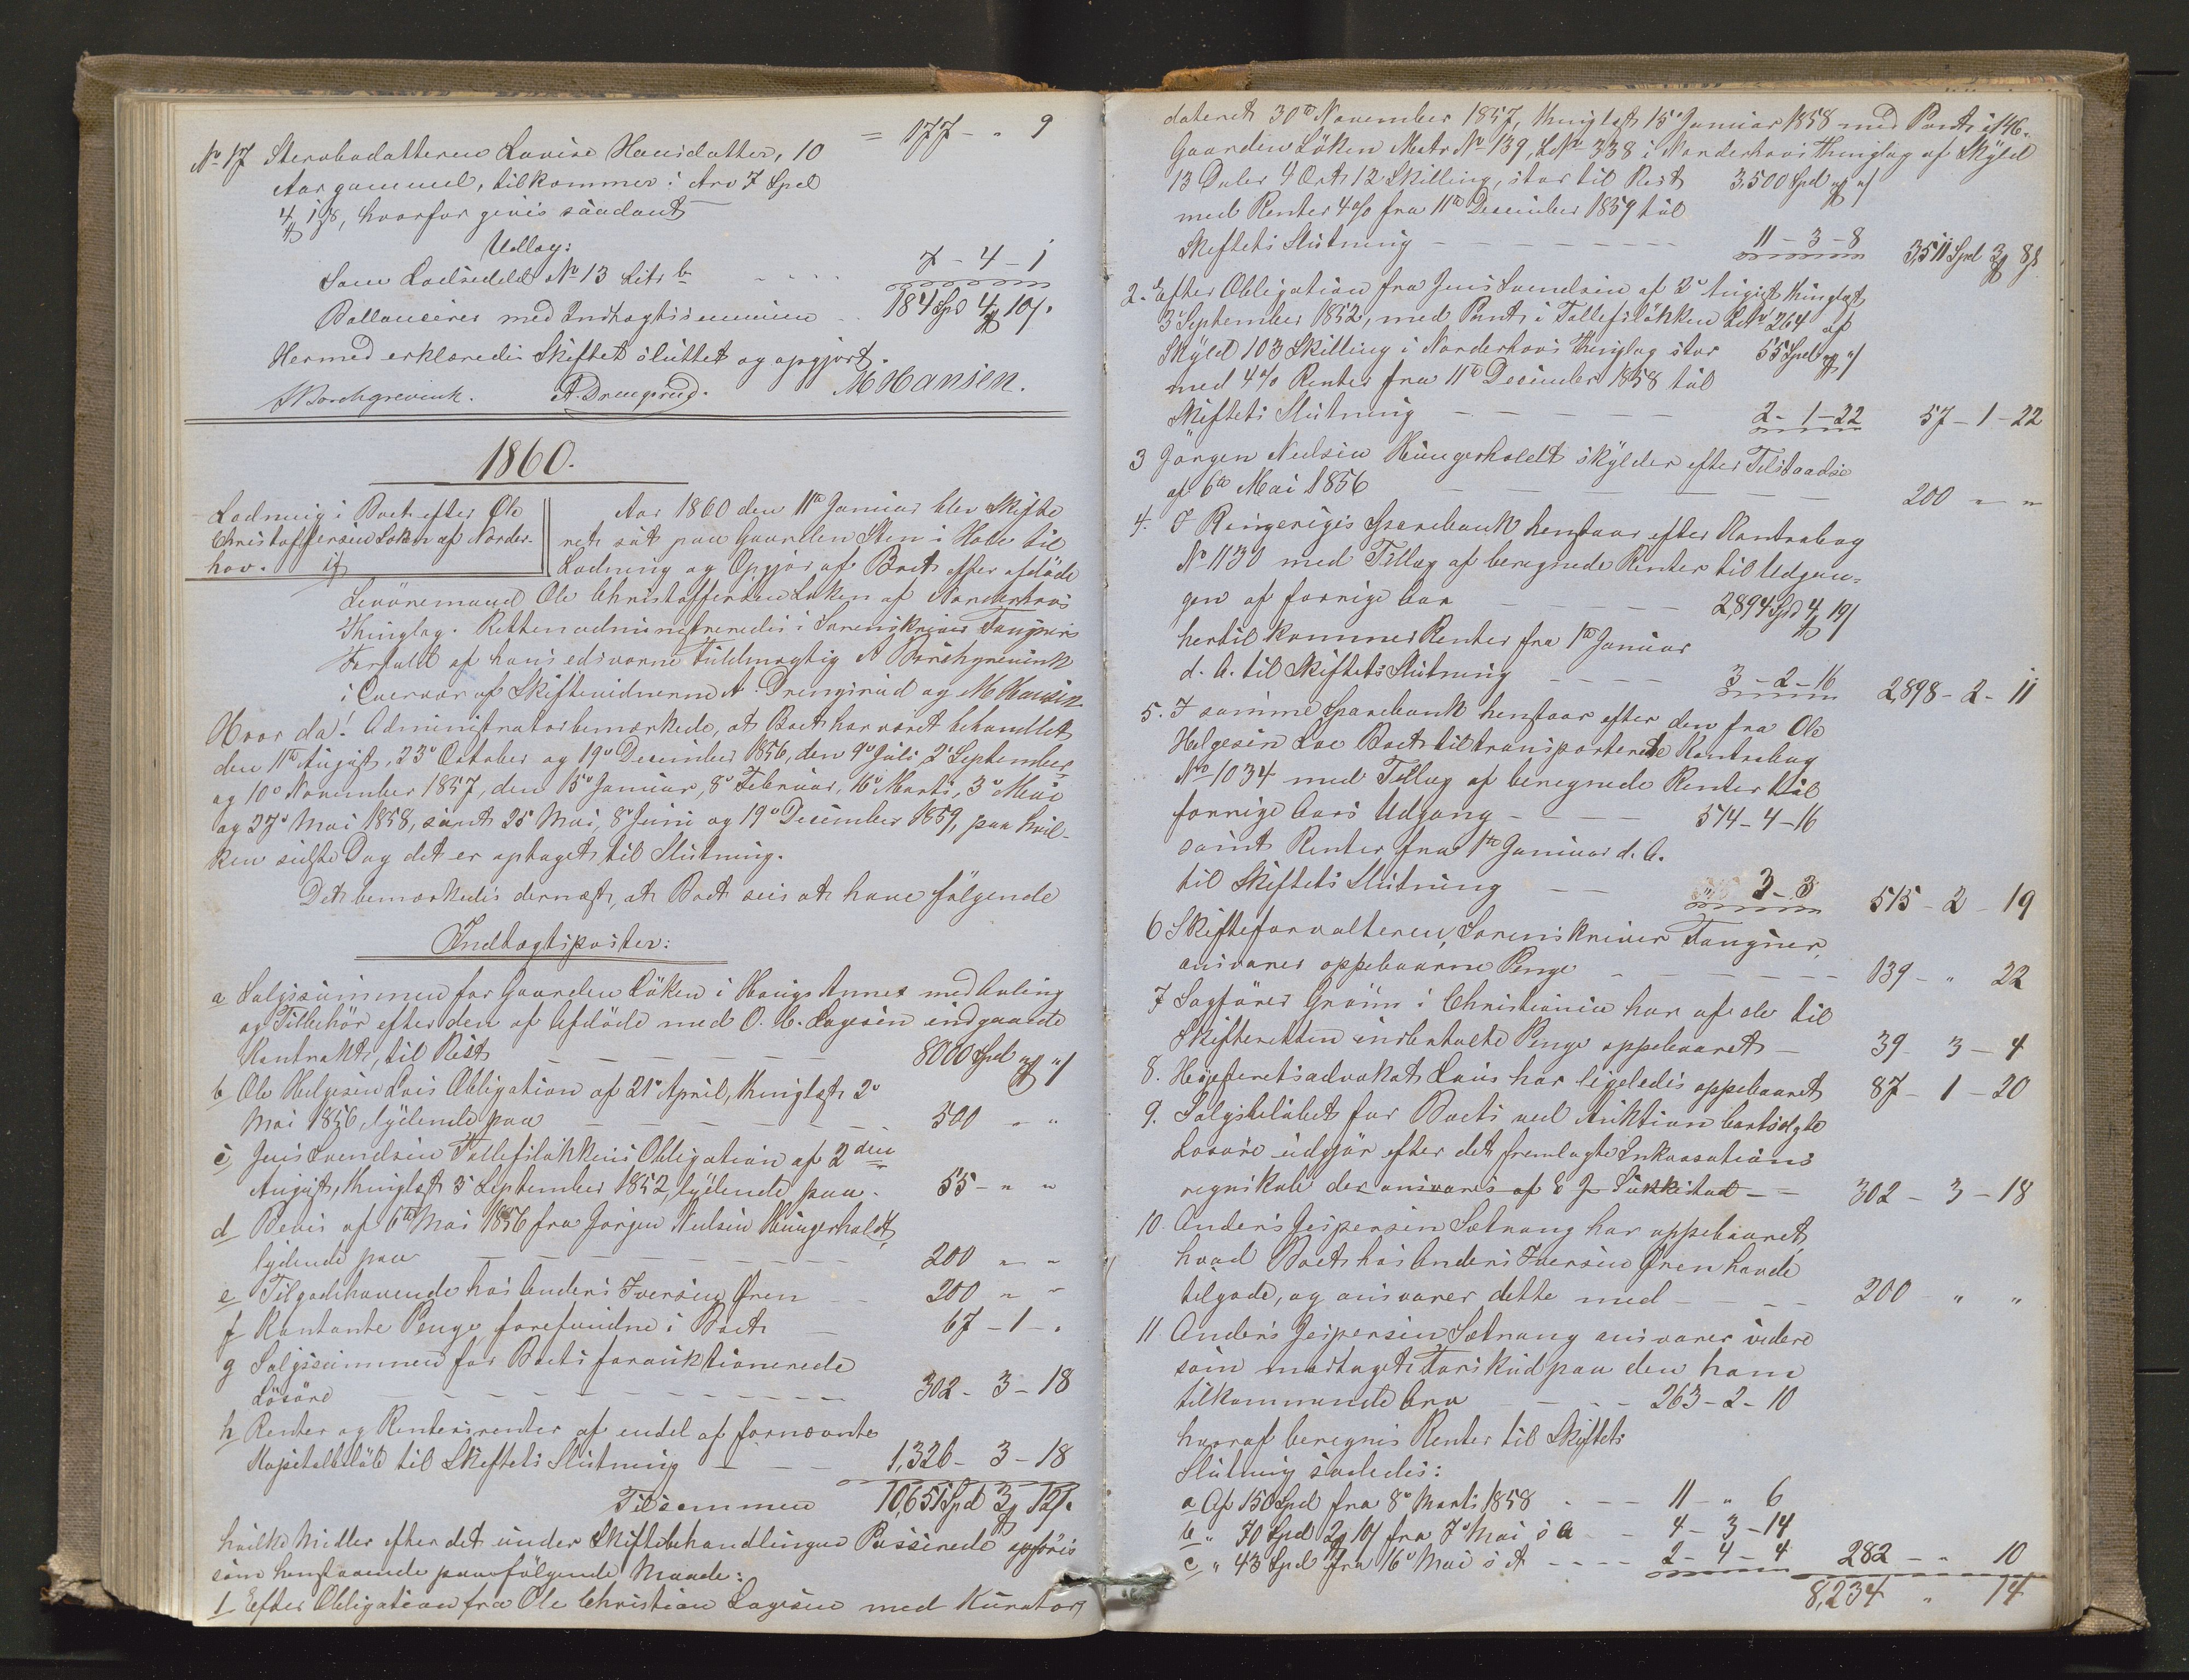 = 177 - " 9
No 17 Stervbodatteren Lovise Hansdatter, 10
Aar gammel, tilkommer i Arv 7 Spd
4 1 ß, hvorfor givis saadant
Udlæg:
Som Lodseddel No 13 Litr b - - - - 7 - 4 - 1
Ballancerer med Indtægtssummen - 184 Spd 4 10 ß.
Hermed erklæredes Skiftet sluttet og opgjort.
A Borchgrevink. A. Drengsrud. M Hansen.
1860.
Lodning i Boet efter Ole
Christoffersen Løken af Norder-
hov.
Aar 1860 den 11te Januar blev Skifte
ret sat paa Gaarden Sten i Hole til
Lodning og Opgjør af Boet efter afdøde
Ole Christoffersen Løken af Norderhovs
Thinglag. Retten administreredes i Sorenskriver Fougners
Forfald af hans edsvorne Fuldmægtig A Borchgrevink
i Overvær af Skiftevidnerne A. Drengsrud og M Hansen
Hvor da! Administrator bemærkede, at Boet har været behandlet
den 11te August, 23de October og 19de December 1856, den 9de Juli 2de September
og 10de November 1857, den 15de Januar, 8de Februar, 16de Marts, 3de Mai
og 27de Mai 1858, samt 25de Mai, 8de Juni og 19de December 1859, paa hvil-
ken sidste Dag det er optaget til Slutning.
Det bemærkedes dernæst, at Boet sees at have følgende
Indtægtsposter:
a Salgssummen for Gaarden Løken i Hougs Annex med Avling
og Tilbehør efter den af Afdøde med O. C. Lagesen indgaaede
Kontrakt, til Rest - - - - - 8000 Spd " "
b Ole Helgesen Loes Obligation af 21de April, thinglæst 2de
Mai 1856, lydende paa - - - - - 500 " "
c, Jens Svendsen Tollefsløkkens Obligation af 2den
August, thinglæst 3 September 1852, lydende paa - 55 - " "
d Bevis af 6te Mai 1856 fra Jørgen Nielsen Hungerholdt,
lydende paa - - - - - 200 " "
e Tilgodehavende hos Anders Iversen Gren - 200 " "
f Kontante Penge, forefundne i Boet - 67 - 1 - "
g Salgssummen for Boets forauktionerede
Løsøre - - - - - 302 - 3 - 18
h Renter og Rentesrenter af endel af fornævnte
Kapitalbeløb til Skiftets Slutning - - - 1,326 - 3 - 18
Tilsammen 10,651 Spd 3 12 ß.
hvilke Midler efter det under Skiftebehandlingen Passerede opføres
som henstaaende paa følgende Maade:
1 Efter Obligation fra Ole Christian Lagesen med Kurator,
dateret 30te November 1857, thinglæst 15de Januar 1858 med Pant i
Gaarden Løken Matr No 139, L No 338 i Norderhovs Thinglag af Skyld
13 Daler 4 Ort 12 Skilling, stor til Rest 3,500 Spd " "
med Renter 4% fra 11te December 1859 til
Skiftets Slutning - - - - - 11 - 3 - 8 3,511 Spd 3 8 ß
2. Efter Obligation fra Jens Svendsen af 2de August thinglæst
3 September 1852, med Pant i Tollefsløkken L No 264 af
Skyld 103 Skilling i Norderhovs Thinglag stor 55 Spd " "
med 4% Renter fra 11te December 1858 til
Skiftets Slutning - - - - - 2 - 1 - 22 57 - 1 - 22
3 Jørgen Nielsen Hungerholdt skylder efter Tilstaaelse
af 6te Mai 1856 - - - - - 200 " "
4. I Ringeriges Sparebank henstaar efter Kontrabog
No 1130 med Tillæg af beregnede Renter til Udgan-
gen af forrige Aar - - - - 2,894 Spd 4 19 ß
hertil kommer Renter fra 1te Januar
d. A. til Skiftets Slutning - - - - 3 - 2 - 16 2,898 - 2 - 11
5. I samme Sparebank henstaar efter den fra Ole
Helgesen Loe Boet tiltransporterede Kontrabog
No 1034 med Tillæg af beregnede Renter til
forrige Aars Udgang - - - - 514 - 4 - 16
samt Renter fra 1te Januar d. A.
til Skiftets Slutning - - " 3 - 3 515 - 2 - 19
6 Skifteforvalteren, Sorenskriver Fougner,
ansvarer oppebaarne Penge - - - - - 139 - " 22
7 Sagfører Grøns i Christiania har af de til
Skifteretten indbetalte Penge oppebaaret - 39 - 3 - 4
8. Høiesteretsadvokat Lous har ligeledes oppebaaret 87 - 1 - 20
9. Salgsbeløbet for Boets ved Auktion bortsolgte
Løsøre udgjør efter det fremlagte Inkassations
regnskab der ansvares af E J Sukkestad - - 302 - 3 - 18
10. Anders Jespersen Sætrang har oppebaaret,
hvad Boet hos Anders Iversen Gren havde
tilgode, og ansvarer dette med - - - 200 - " "
11 Anders Jespersen Sætrang ansvarer videre
som modtaget Forskud paa den ham
tilkommende Arv - - - 263 - 2 - 10
hvoraf beregnes Renter til Skiftets
Slutning saaledes:
a Af 150 Spd fra 8de Marts 1858 - - - 11 - " 6
b " 70 Spd 2 10 ß fra 7de Mai s A - - 4 - 3 - 14
c " 43 Spd fra 16de Mai s A - - - - 2 - 4 - 4 282 - " 10
8,234 " 14